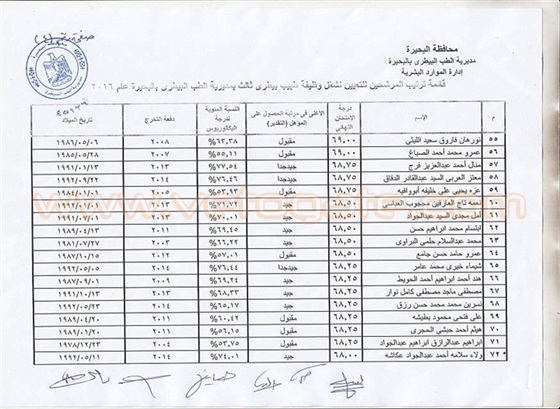 صفحة رقم (٤)
محافظة البحيرة
مديرية الطب البيطرى بالبحيرة
إدارة الموارد البشرية
قائمة ترتيب المرشحين للتعيين لشغل وظيفة طبيب بيطرى ثالث بمديرية الطب البيطرى بالبحيرة عام ٢٠١٦
م الإسم درجة الامتحان النهائى الاعلى فى مرتبة الحصول على المؤهل (التقدير) النسبة المئوية لدرجة البكالوريوس دفعة التخرج تاريخ الميلاد
٥٥ نورهان فاروق سعيد الليثى ٦٩,٠٠ مقبول ٦٣,٣٨% ٢٠٠٨ ١٩٨٦/٠٥/٠٦
٥٦ عمرو محمد أحمد الصباغ ٦٩,٠٠ مقبول ٥٥,١١% ٢٠٠٨ ١٩٨٥/٠٥/٢٨
٥٧ منال أحمد عبدالعزيز فرج ٦٨,٧٥ جيدجدا ٧٧,٥٤% ٢٠١٣ ١٩٩١/٠١/١٣
٥٨ معتز العربى السيد عبدالقادر الدقاق ٦٨,٧٥ جيدجدا ٧٦,٤٦% ٢٠١٤
٥٩ عزه يحيى على خليفه أبووافيه ٦٨,٧٥ مقبول ٥٣,٩٣% ٢٠٠٨ ١٩٨٤/٠١/٠١
٦٠ نعمه تاج العارفين محجوب العباسى ٦٨,٥٠ جيد ٧١,٧٢% ٢٠١٣
٦١ أمل مجدى السيد عبدالجواد ٦٨,٥٠ جيد ٧٠,٠١% ٢٠١٣ ١٩٩١/٠٧/٠١
٦٢ ابتسام محمد ابراهيم حسن ٦٨,٥٠ جيد ٦٩,٤٥% ٢٠١١ ١٩٨٩/٠٤/١٣
٦٣ محمد عبدالسلام حلمى البراوى ٦٨,٥٠ جيد ٦٦,٢٢% ٢٠٠٣ ١٩٨١/٠٧/٢٧
٦٤ عمرو حامد حسن جامع ٦٨,٥٠ مقبول ٥٧,٠١% ٢٠١٢ ١٩٨٧/١٠/١٥
٦٥ شيماء خيرى محمد عامر ٦٨,٢٥ جيدجدا ٧٦,٤٤% ٢٠١٤ ١٩٩٢/٠٥/٠٥
٦٦ هند أحمد ابراهيم أحمد الحويط ٦٨,٢٥ جيد ٦٩,٢٣% ٢٠١١ ١٩٨٧/٠٩/٠٦
٦٧ مصطفى ماجد مصطفى كامل نوار ٦٨,٢٥ جيد ٦٨,٣٣% ٢٠١٣ ١٩٩١/١٠/١٣
٦٨ نسرين محمد محمد حسن رزق ٦٨,٢٥ جيد ٦٥,١٧% ٢٠١٤
٦٩ على فتحى محمود بطيشه ٦٨,٢٥ مقبول ٦٠,٤٢% ٢٠١١ ١٩٨٩/٠٤/٢٠
٧٠ هيثم أحمد حبشى الحجرى ٦٨,٢٥ مقبول ٥٦,١٥% ٢٠١١ ١٩٨٩/٠١/٢٠
٧١ ابراهيم عبدالرازق ابراهيم عبدالجواد ٦٨,٢٥ مقبول ٥٣,٧٥% ٢٠٠٤ ١٩٧٨/١٢/٢٣
٧٢ ولاء سلامه أحمد عبدالجواد عكاشه ٦٨,٠٠ جيد ٧٤,٠١% ٢٠١٤ ١٩٩٢/٠٥/١١